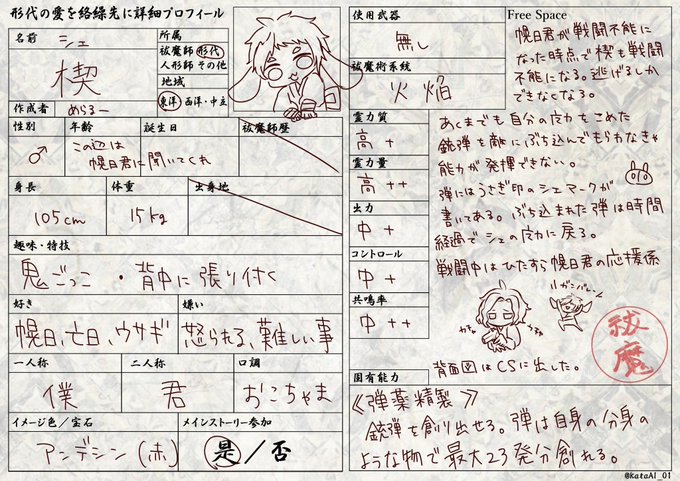 形代の愛を絡繰先に詳細プロフィール
名前
シェ
楔
所属
祓魔師 形代
人形師 その他
地域
東洋・西洋・中立
作成者
めらるー
性別
♂
年齢
誕生日
この辺は
幌日君に聞いてくれ
祓魔師歴
身長
105cm
体重
15kg
出身地
趣味・特技
鬼ごっこ・背中に張り付く
好き
幌日、亡日、ウサギ
嫌い
怒られる、難しい事
一人称
僕
二人称
君
口調
おこちゃま
イメージ色/宝石
アンデシン(赤)
メインストーリー参加
是/否
使用武器
無し
祓魔術系統
火焔
霊力質
高+
霊力量
高++
出力
中+
コントロール
中+
共鳴率
中++
Free Space
幌日君が戦闘不能に
なった時点で楔も戦闘
不能になる。逃げるしか
できなくなる。
あくまでも自分の力をこめた
銃弾を敵にぶち込んでもらわなきゃ
能力が発揮できない。
弾にはうさぎ印のシェマークが
書いてある。ぶち込まれた弾は時間
経過でシェの力に戻る。
戦闘中はひたすら幌日君の応援係
ガンバレー
背面図はCSに出した。
祓魔
固有能力
《弾薬精製》
銃弾を創り出せる。弾は自身の分身の
ような物で最大23発分創れる。
@kataAI_01